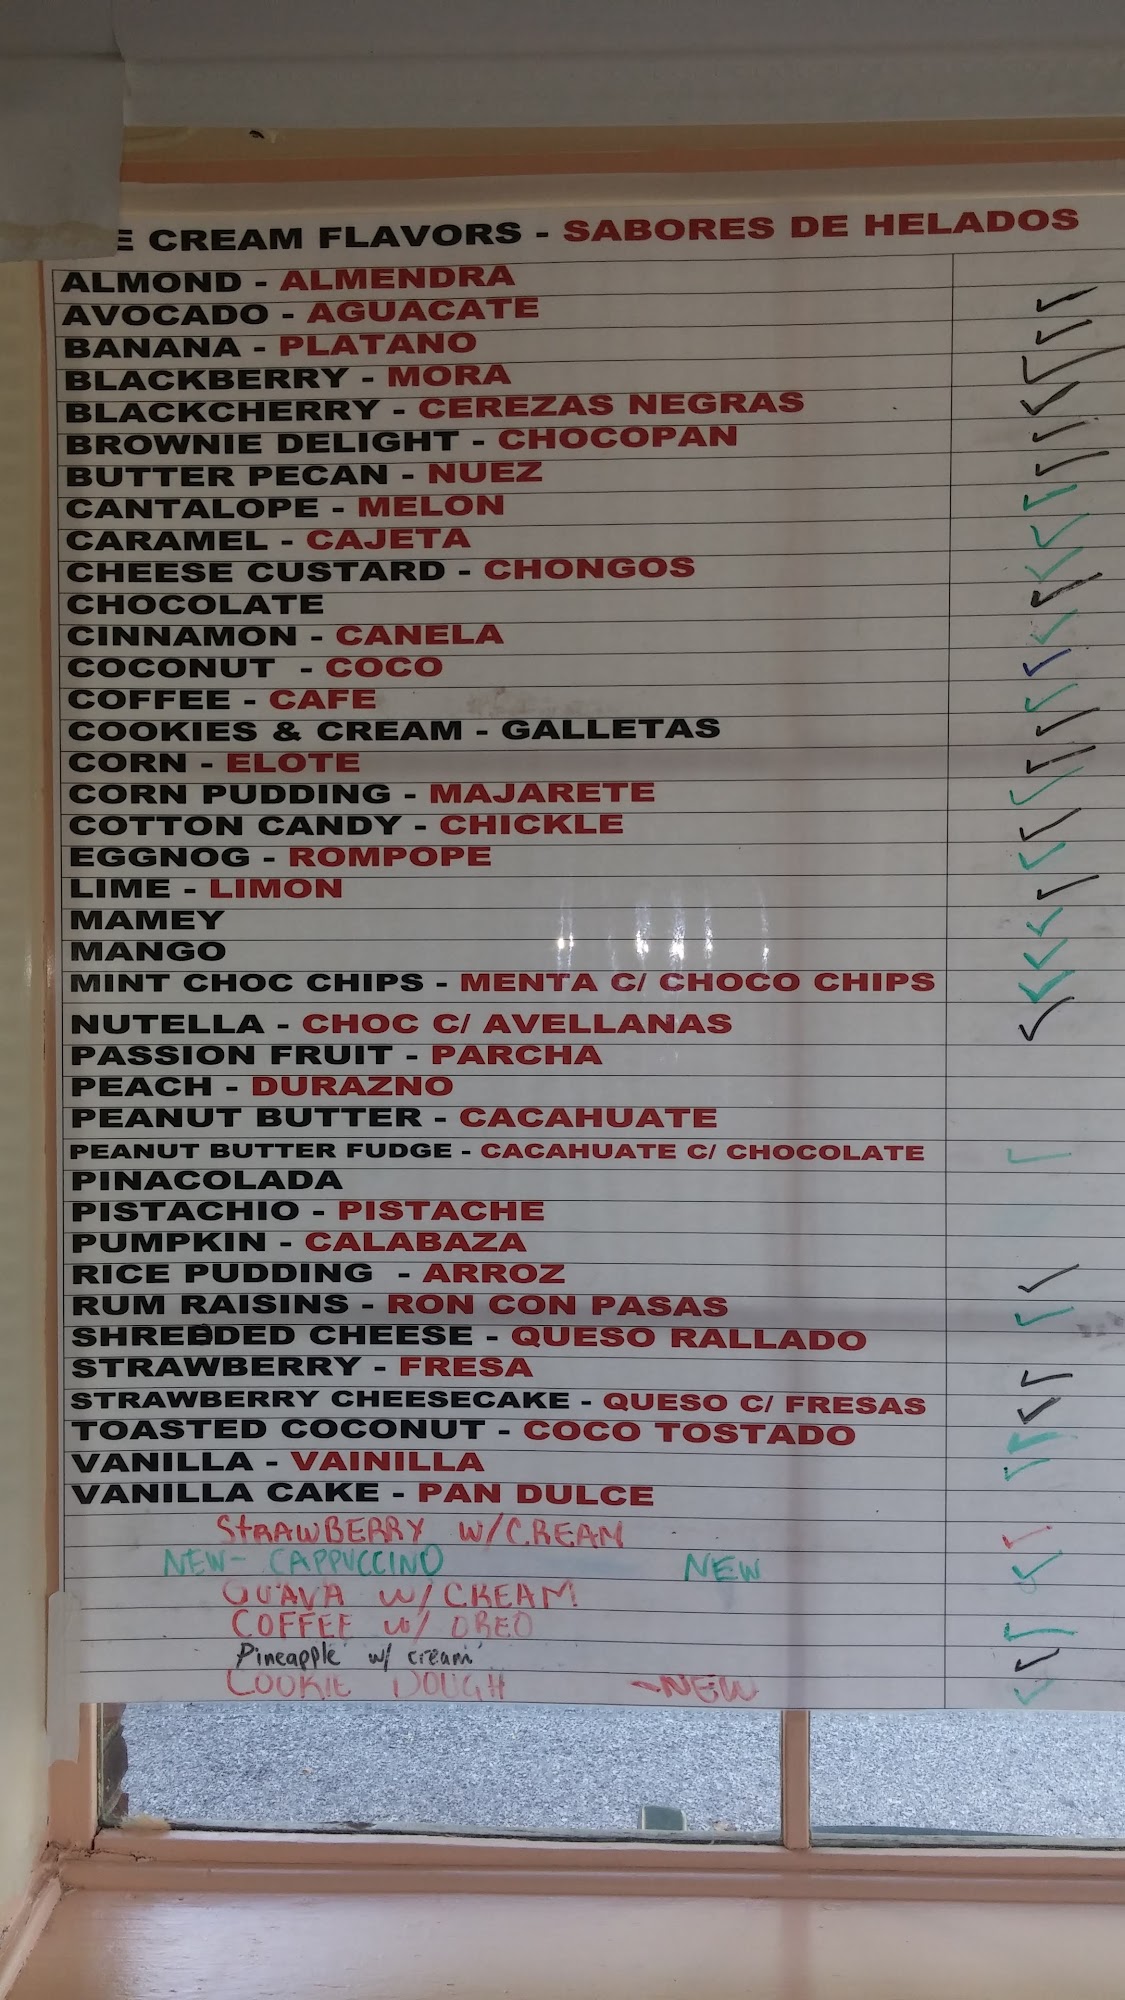 E CREAM FLAVORS - SABORES DE HELADOS
ALMOND - ALMENDRA
AVOCADO - AGUACATE
BANANA - PLATANO
BLACKBERRY - MORA
BLACKCHERRY - CEREZAS NEGRAS
BROWNIE DELIGHT - CHOCOPAN
BUTTER PECAN - NUEZ
CANTALOPE - MELON
CARAMEL - CAJETA
CHEESE CUSTARD - CHONGOS
CHOCOLATE
CINNAMON - CANELA
COCONUT - COCO
COFFEE - CAFE
COOKIES & CREAM - GALLETAS
CORN - ELOTE
CORN PUDDING - MAJARETE
COTTON CANDY - CHICKLE
EGGNOG - ROMPOPE
LIME - LIMON
MAMEY
MANGO
MINT CHOC CHIPS - MENTA C/ CHOCO CHIPS
NUTELLA - CHOC C/ AVELLANAS
PASSION FRUIT - PARCHA
PEACH - DURAZNO
PEANUT BUTTER - CACAHUATE
PEANUT BUTTER FUDGE - CACAHUATE C/ CHOCOLATE
PINACOLADA
PISTACHIO - PISTACHE
PUMPKIN - CALABAZA
RICE PUDDING - ARROZ
RUM RAISINS - RON CON PASAS
SHREDDED CHEESE - QUESO RALLADO
STRAWBERRY - FRESA
STRAWBERRY CHEESECAKE - QUESO C/ FRESAS
TOASTED COCONUT - COCO TOSTADO
VANILLA - VAINILLA
VANILLA CAKE - PAN DULCE
STRAWBERRY W/CREAM
NEW- CAPPUCCINO NEW
GUAVA W/ CREAM
COFFEE w/ OREO
Pineapple w/ cream
COOKIE DOUGH -NEW